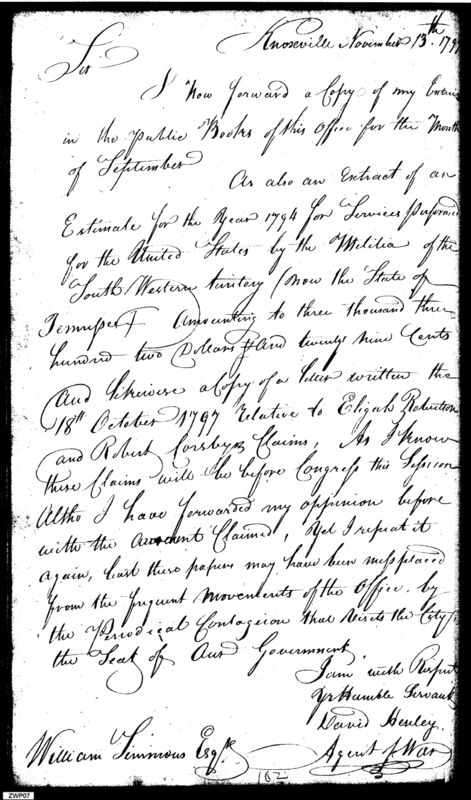 Knoxville November 13th. 179
Sir
I Now forward a Copy of my Entries
in the Public Books of this Office for the Month
of September
As also an Extract of an
Estimate for the Year 1794 for Services Performed
for the United States by the Militia of the
South Western territory (now the State of
Tennessee) Amounting to three thousand three
hundred two Dollars And twenty nine Cents
And likewise a Copy of a letter written the
18th October 1797 relative to Elijah Robertson
and Robert Claims, As I know
these Claims will be before Congress this Session
Altho I have forwarded my oppinion before
with the Amount Claimed, Yet I repeat it
again, least these papers may have been missplaced
from the frequent Movements of the Office. by
the Periodical Contageon that Visits the City
the Seat of Government
I am with Respect
Yr Humble Servant
David Henley
Agent of War
William Simmons Esqr
102
ZWP07